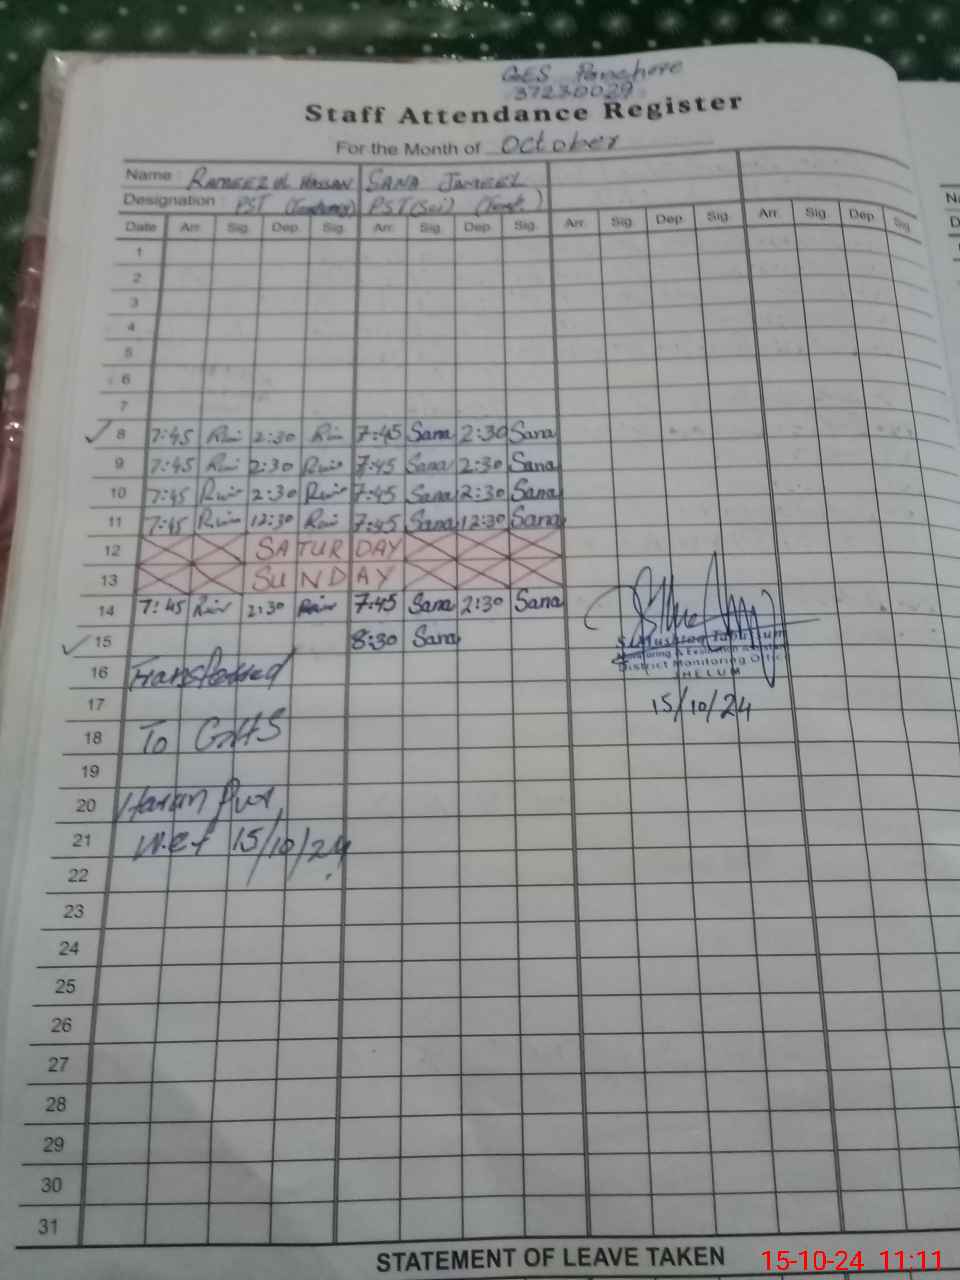 GES
37230029
Staff Attendance Register
For the Month of October
Name : RAMEEZ UL HASSAN SANA JAMEEL
Designation : PST PST (Sci)
Date Arr. Sig. Dep. Sig. Arr. Sig. Dep. Sig. Arr. Sig. Dep. Sig. Arr. Sig. Dep. Sig.
1
2
3
4
5
6
7
8 7:45 2:30 7:45 Sana 2:30 Sana
9 7:45 2:30 7:45 Sana 2:30 Sana
10 7:45 2:30 7:45 Sana 2:30 Sana
11 7:45 12:30 7:45 Sana 12:30 Sana
12 SATURDAY
13 SUNDAY
14 7:45 2:30 7:45 Sana 2:30 Sana
15 8:30 Sana
District Monitoring Office
JHELUM
15/10/24
16 Transferred
17
18 To GHS
19
20 Haran Pur
21 w.e.f 15/10/24
22
23
24
25
26
27
28
29
30
31
STATEMENT OF LEAVE TAKEN
15-10-24 11:11